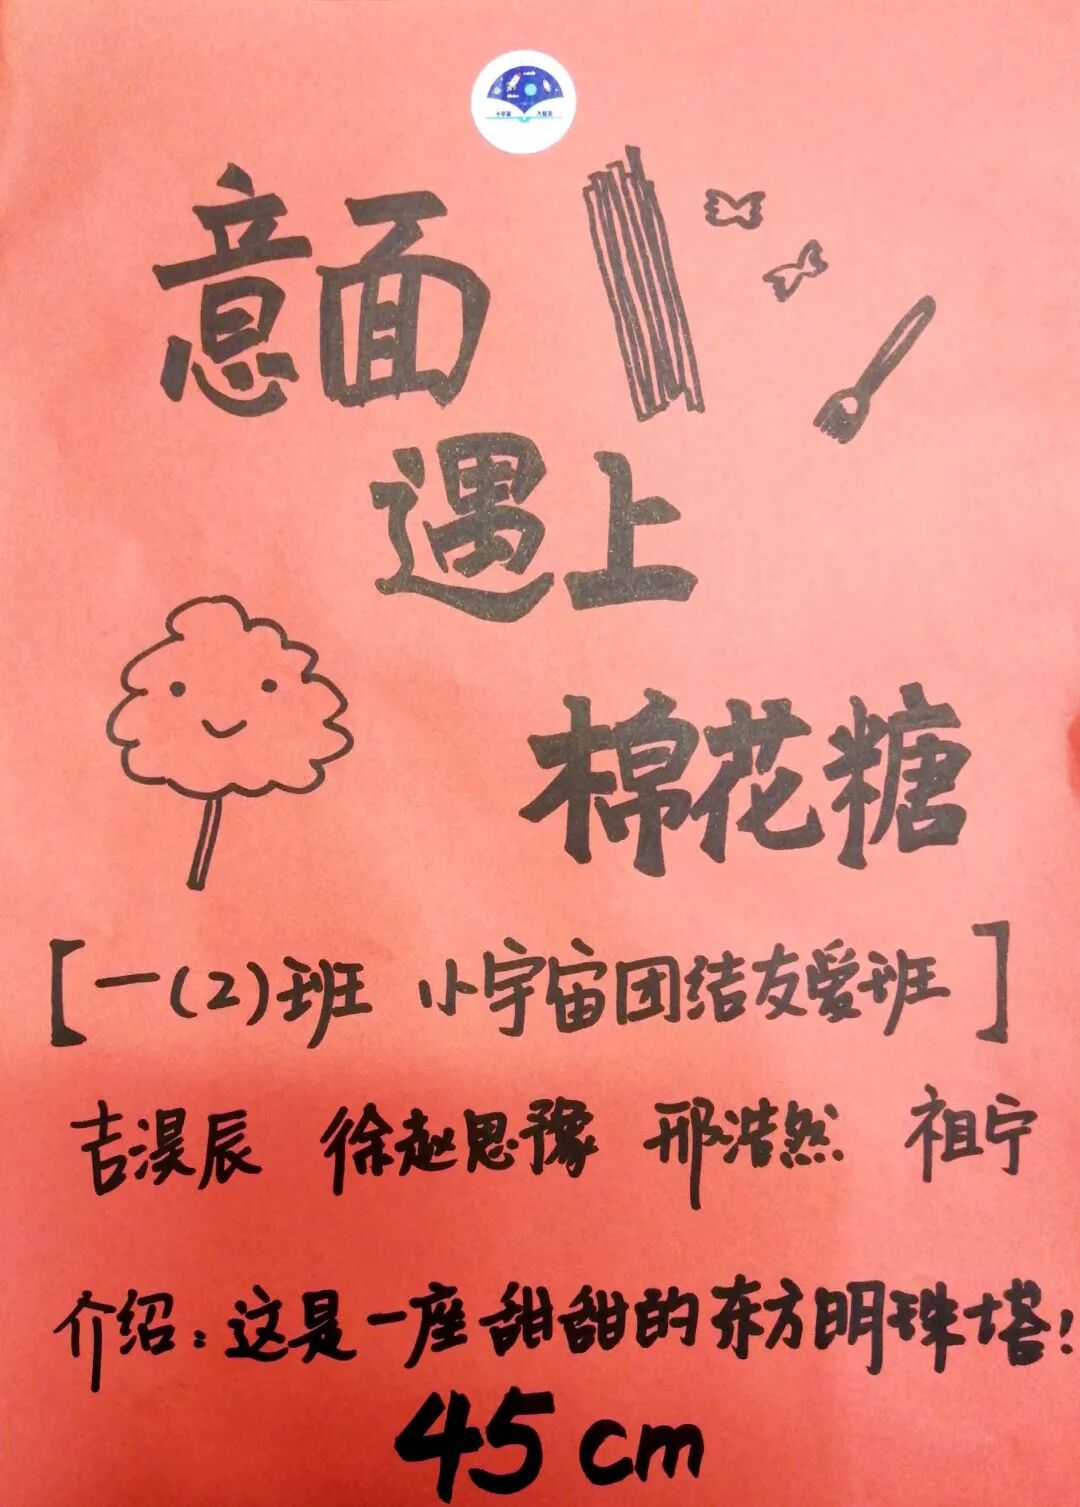 小宇宙 大能量
意面
遇上
棉花糖
[一(2)班 小宇宙团结友爱班]
吉淏辰 徐赵思豫 邢浩然 祖宁
介绍：这是一座甜甜的东方明珠塔！
45cm